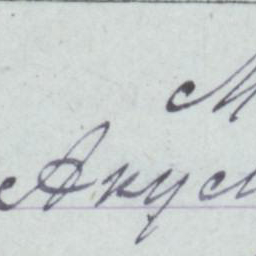 М
Акус